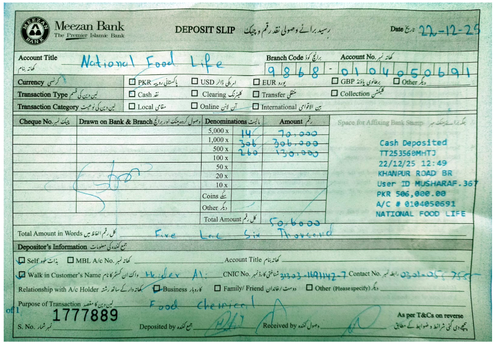 Meezan Bank
The Premier Islamic Bank
DEPOSIT SLIP رسید برائے وصولی نقد رقم و چیک
Date تاریخ 22-12-25
Account Title National Food Life
Branch Code برانچ کوڈ Account No. اکاؤنٹ نمبر
9868-0104050691
Currency کرنسی PKR پاکستانی روپیہ USD امریکی ڈالر EUR یورو GBP برطانوی پاؤنڈ Other دیگر
Transaction Type لین دین کی قسم Cash نقد Clearing کلیئرنگ Transfer منتقلی Collection کلیکشن
Transaction Category لین دین کی نوعیت Local مقامی Online آن لائن International بین الاقوامی
Cheque No. چیک نمبر Drawn on Bank & Branch Denominations Amount رقم
5,000 x 14 70.000
1,000 x 306 306.000
500 x 260 130.000
100 x
50 x
20 x
10 x
Coins سکے
Other دیگر
Total Amount کل رقم 506000
Space for Affixing Bank Stamp
Cash Deposited
TT253560MHTJ
22/12/25 12:49
KHANPUR ROAD BR
User ID MUSHARAF.367
PKR 506,000.00
A/C # 0104050691
NATIONAL FOOD LIFE
Total Amount in Words Five Lac Six Thousand
Depositor's Information جمع کنندہ کی معلومات
Self خود MBL A/c No. Account Title
Walk in Customer's Name CNIC No. Contact No.
Relationship with A/c Holder Business کاروبار Family/ Friend Other (Please specify) دیگر
Purpose of Transaction Food Chemical
of 1
1777889
S. No. Deposited by جمع کنندہ Received by وصول کنندہ
As per T&Cs on reverse